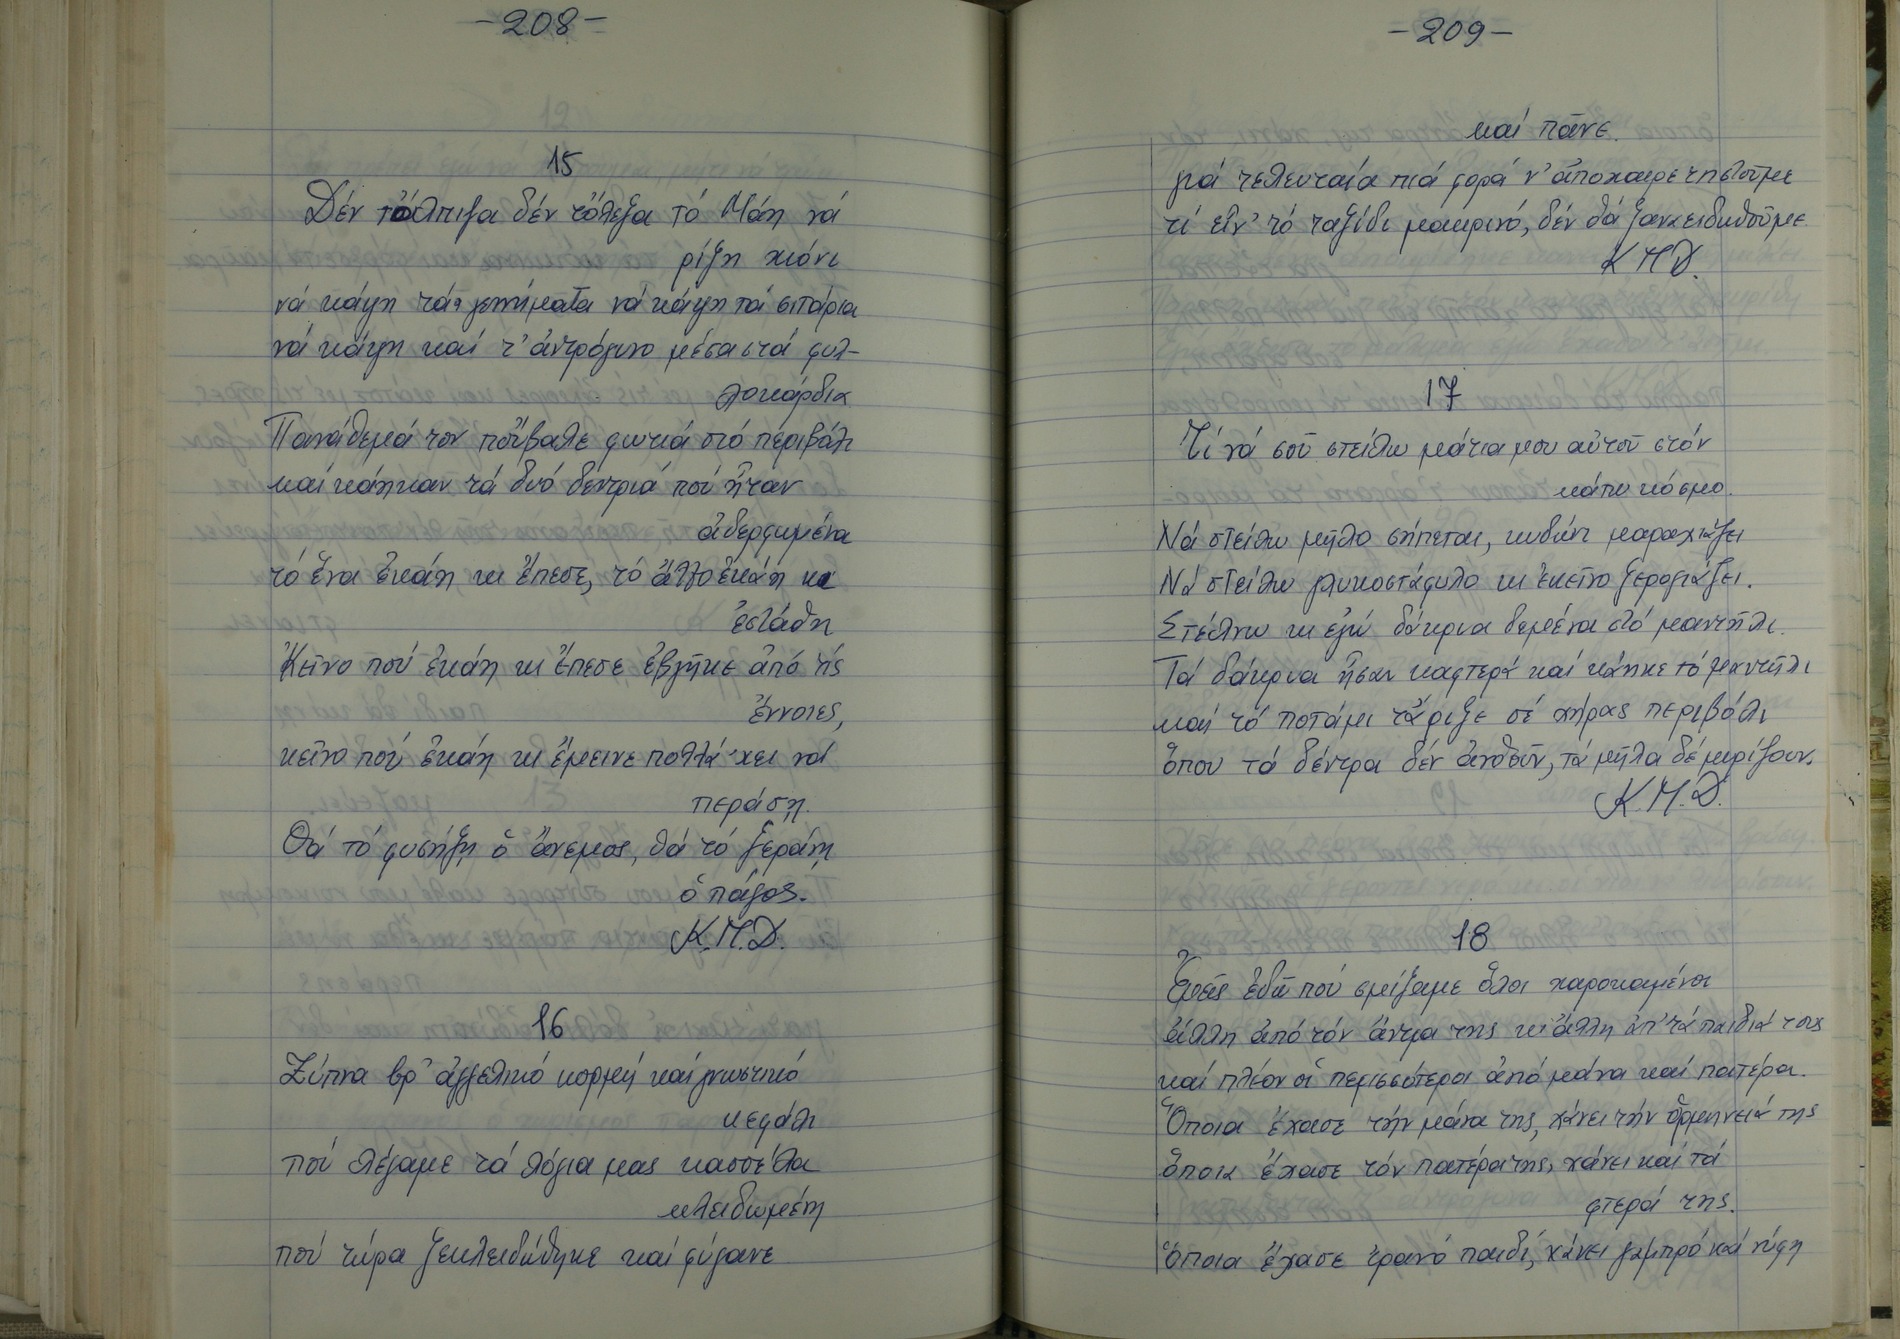 -208-
15
Δέν τόλπιζα δέν τόλεξα τό Μάη νά
ρίξη χιόνι
νά κάψη τά γεννήματα νά κάψη τά σιτάρια
νά κάψη καί τ' ἀντρόγυνο μέσα στά φυλ-
λοκάρδια
Πανάθεμά τον πὄβαλε φωτιά στό περιβόλι
καί κάηκαν τά δυό δεντριά πού ἦταν
ἀδερφωμένα
τό ἕνα ἐκάη κι ἔπεσε, τό ἄλλο ἐκάη κι
ἐστάθη
Κεῖνο πού ἐκάη κι ἔπεσε ἐβγῆκε ἀπό τίς
ἔννοιες,
κεῖνο πού ἐκάη κι ἔμεινε πολλά 'χει νά
περάση.
Θά τό φυσήξη ὁ ἄνεμος, θά τό ξεράνη
ὁ πάγος.
Κ.Μ.Δ.
16
Ξύπνα βρ' ἀγγελικό κορμί καί γνωστικό
κεφάλι
πού λέγαμε τά λόγια μας κασσέλα
κλειδωμένη
πού τώρα ξεκλειδώθηκε καί φύγανε
-209-
καί πᾶνε.
γιά τελευταία πιά φορά ν' ἀποχαιρετηστοῦμε
τί εἶν' τό ταξίδι μακρινό, δέν θά ξαναειδωθοῦμε
Κ Μ Δ.
17
Τί νά σοῦ στείλω μάτια μου αὐτοῦ στόν
κάτω κόσμο.
Νά στείλω μῆλο σήπεται, κυδώνι μαραγκιάζει
Νά στείλω γλυκοστάφυλο κι ἐκεῖνο ξερογιάζει.
Στέλνω κι ἐγώ δάκρυα δεμένα στό μαντήλι.
Τά δάκρυα ἦσαν καφτερά καί κάηκε τό μαντῆλι
καί τό ποτάμι τἄριξε σέ χήρας περιβόλι
ὅπου τά δέντρα δέν ἀνθοῦν, τά μῆλα δέ μυρίζουν.
Κ.Μ.Δ.
18
Ἐμεῖς ἐδῶ πού σμίξαμε ὅλοι χαροκαμένοι
ἄλλη ἀπό τόν ἄντρα της κι ἄλλη ἀπ' τά παιδιά τους
καί πλέον οἱ περισσότεροι ἀπό μάνα καί πατέρα.
Ὅποια ἔχασε τήν μάνα της, χάνει τήν ὁρμηνειά της
ὅποια ἔχασε τόν πατέρα της, χάνει καί τά
φτερά της.
Ὅποια ἔχασε τρανό παιδί, χάνει γαμπρό καί νύφη